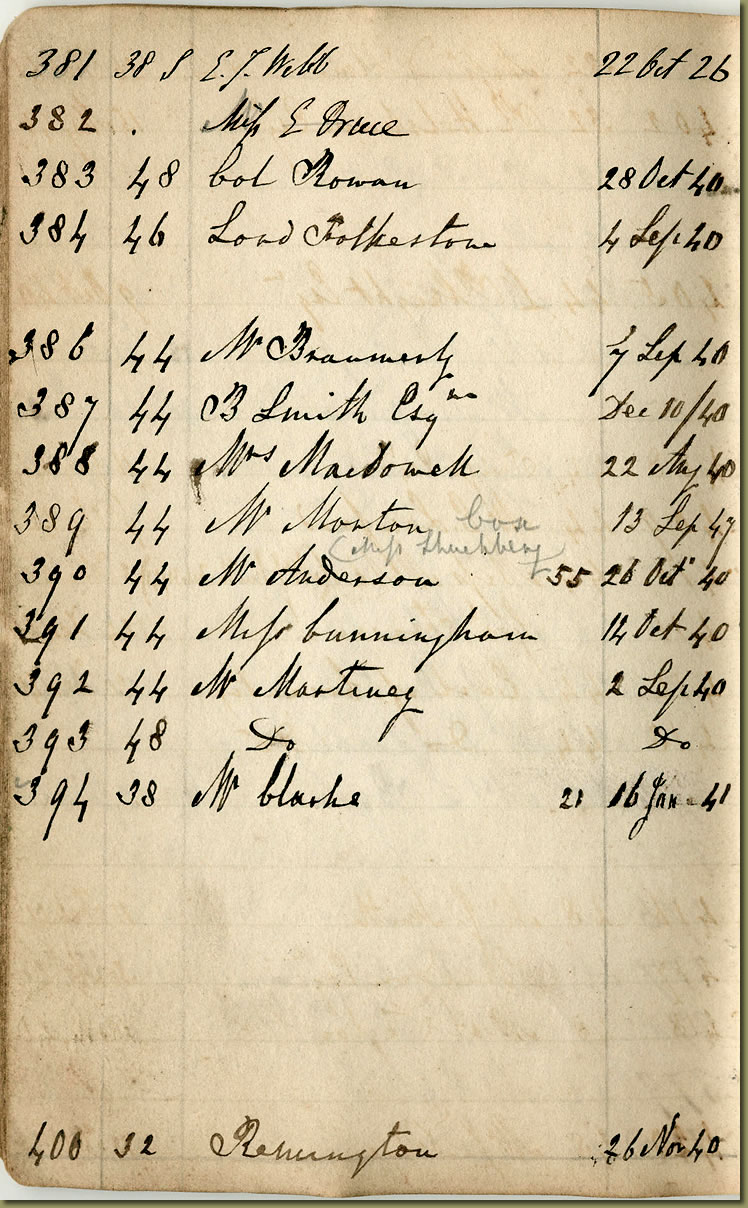 381 38 S E. J. Webb 22 Oct 26
382 . Miss E Druce
383 48 Col Rowan 28 Oct 40
384 46 Lord Folkestone 4 Sep 40
386 44 Mr 7 Sep 40
387 44 B Smith Esqre Dec 10/40
388 44 Mrs Macdowell 22 Aug 40
389 44 Mr Morton box 13 Sep 47
(Miss
390 44 Mr Anderson 55 26 Oct 40
391 44 Miss Cunningham 14 Oct 40
392 44 Mr Martinez 2 Sep 40
393 48 Do Do
394 38 Mr Clarke 21 16 Jan 41
400 32 Remington 26 Nov 40